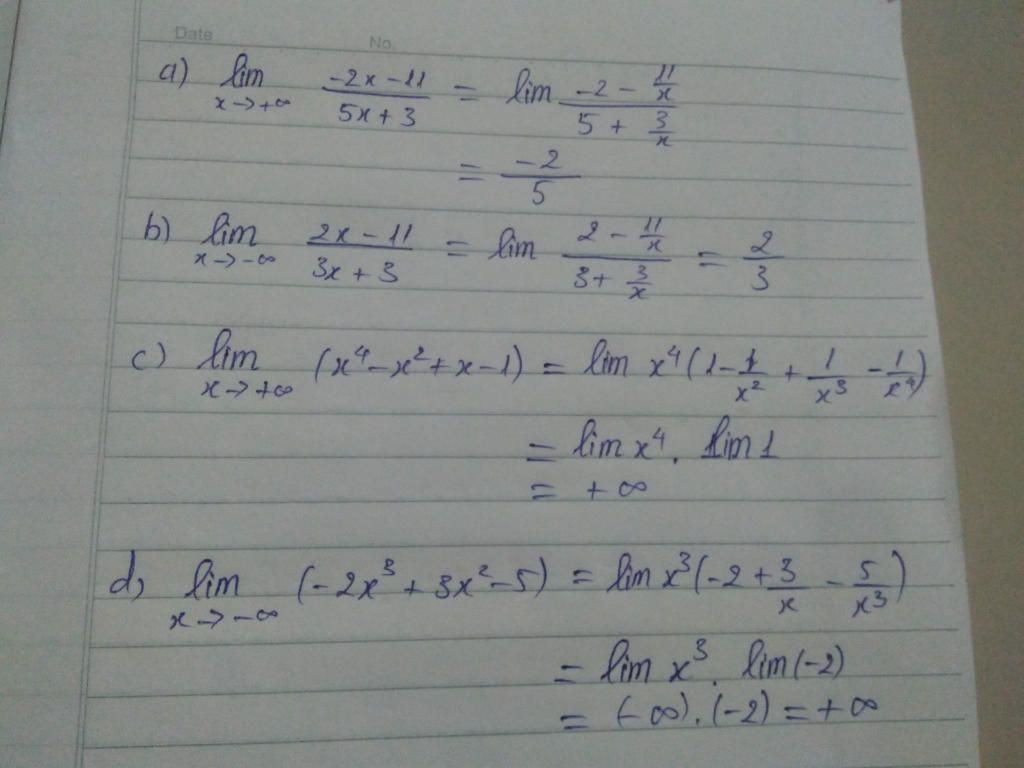 Date No.
a) lim x→+∞ (-2x-11)/(5x+3) = lim (-2 - 11/x)/(5 + 3/x)
= -2/5
b) lim x→-∞ (2x-11)/(3x+3) = lim (2 - 11/x)/(3 + 3/x) = 2/3
c) lim x→+∞ (x⁴-x²+x-1) = lim x⁴(1 - 1/x² + 1/x³ - 1/x⁴)
= lim x⁴. lim 1
= +∞
d) lim x→-∞ (-2x³+3x²-5) = lim x³(-2 + 3/x - 5/x³)
= lim x³. lim(-2)
= (-∞).(-2) = +∞